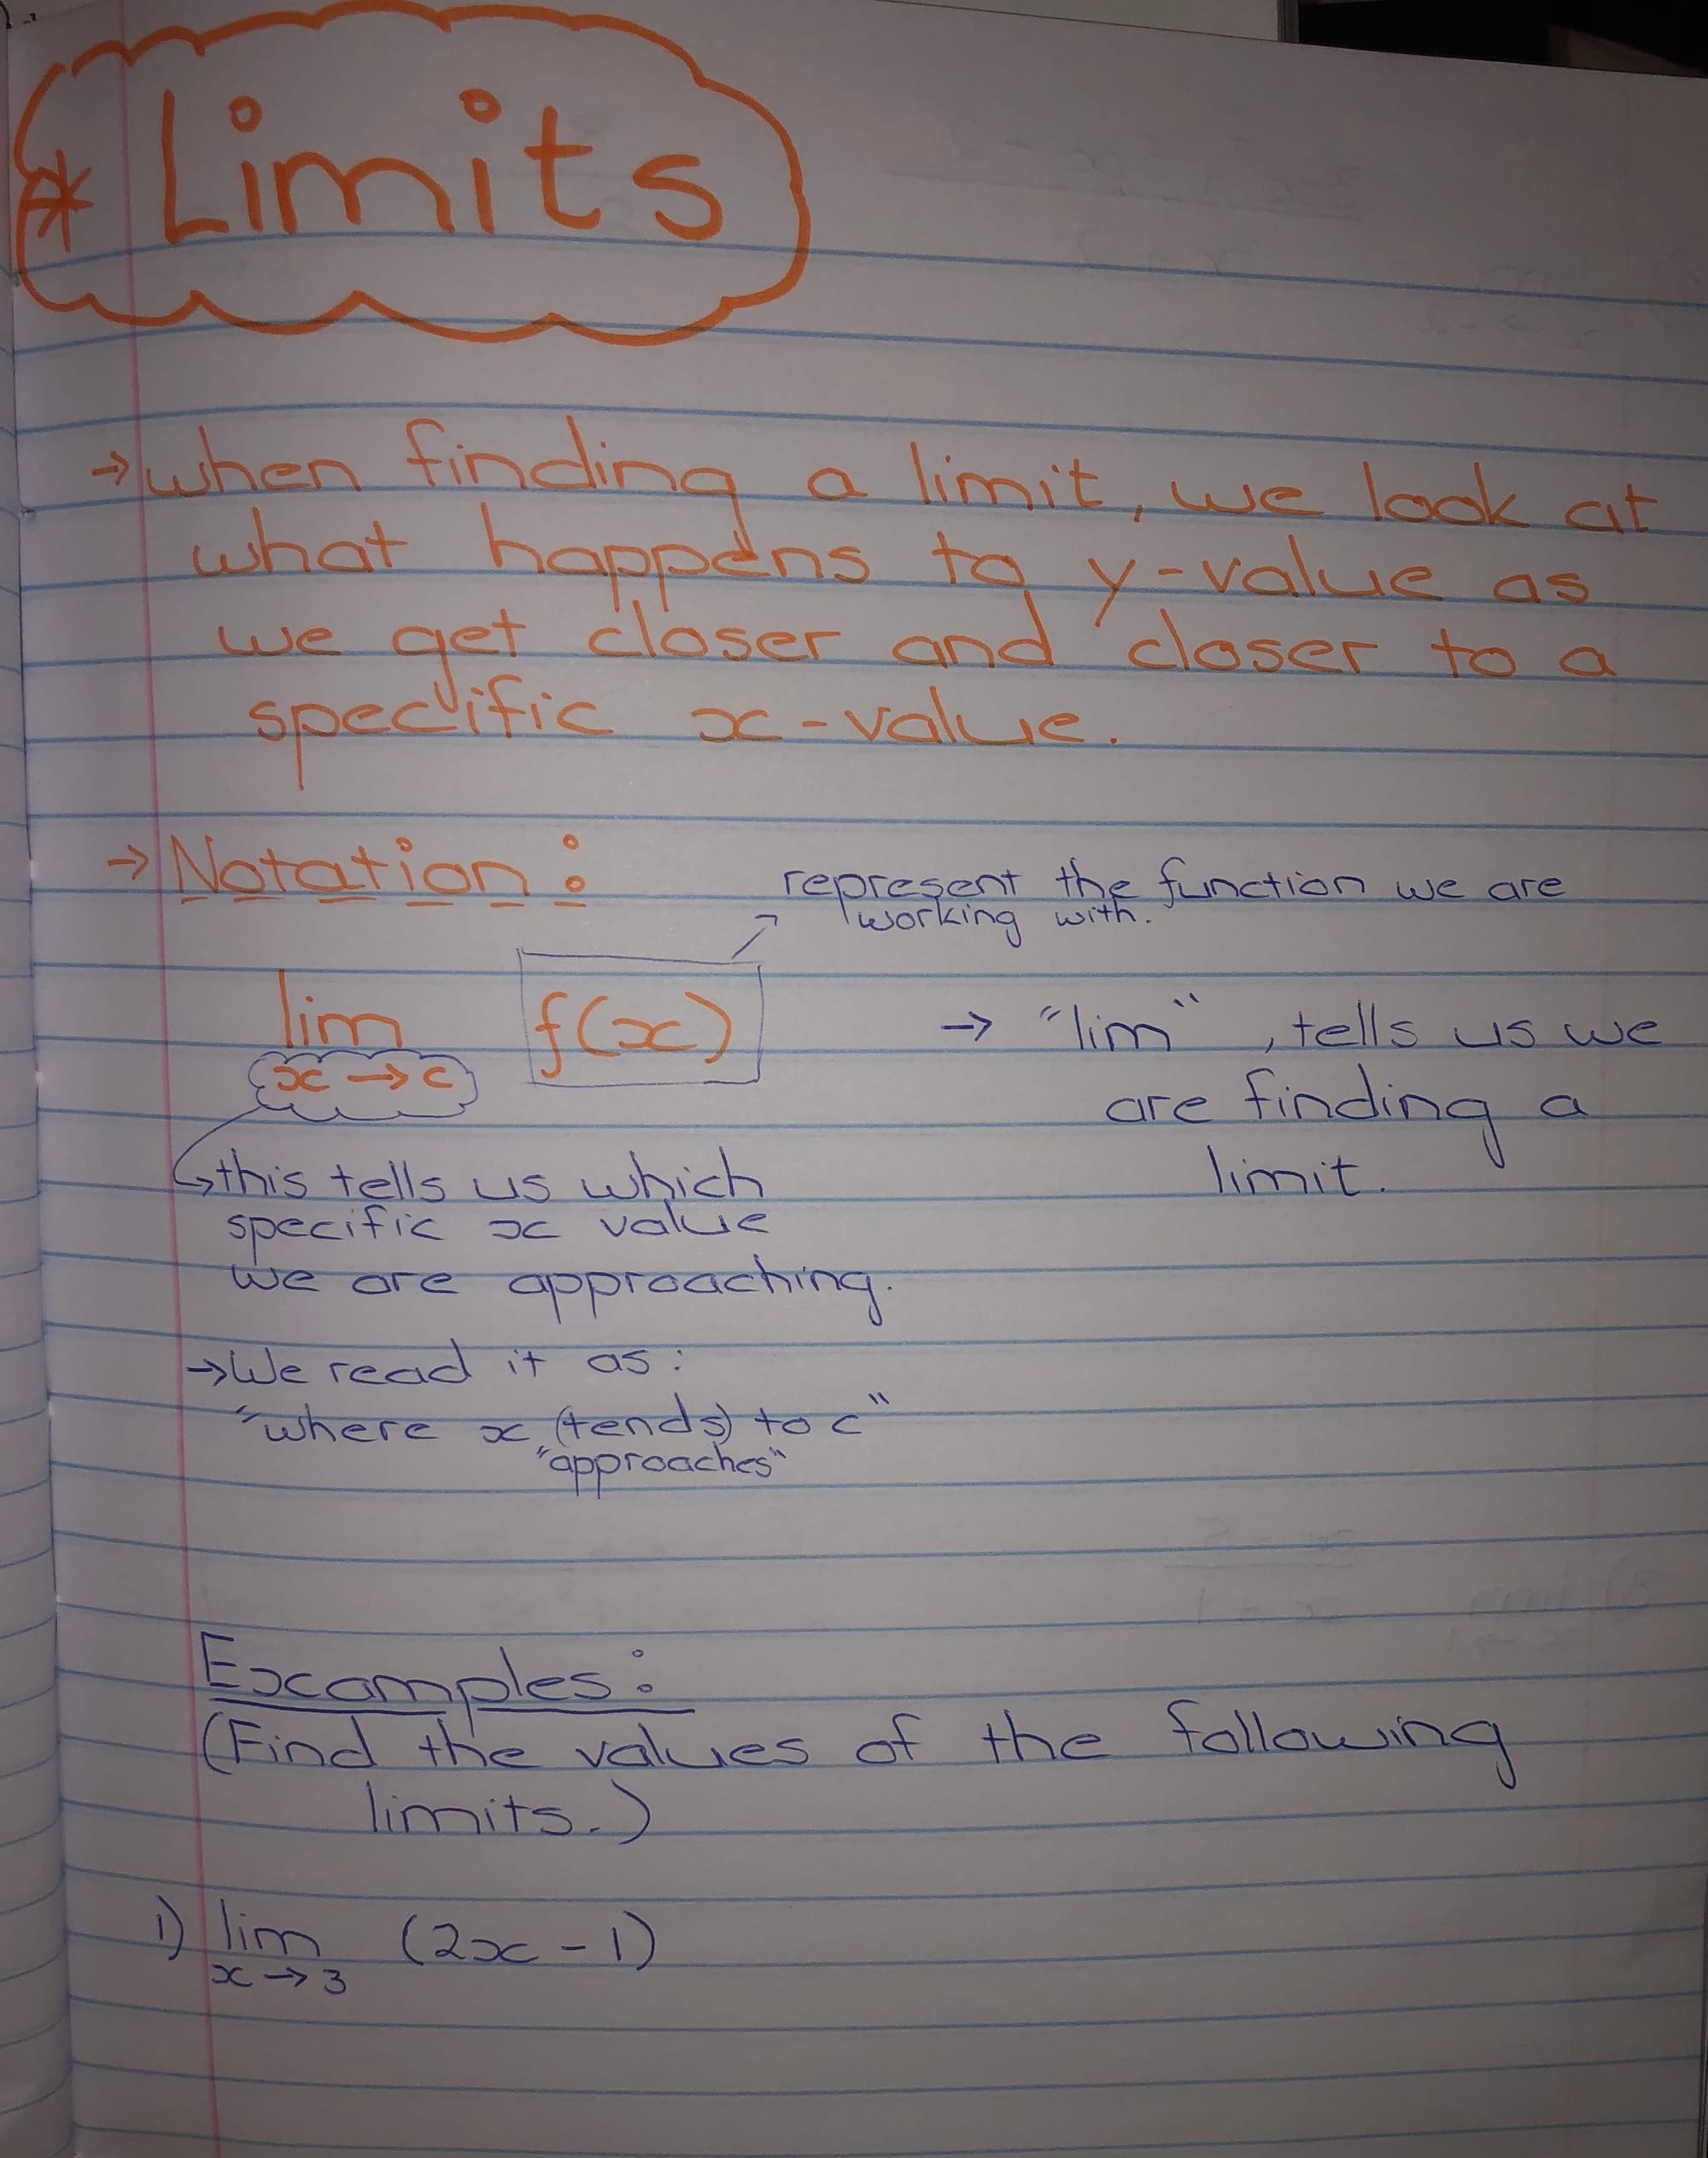 * Limits
→ when finding a limit, we look at
what happens to y-value as
we get closer and closer to a
specific x-value.
→ Notation:
represent the function we are
working with.
lim f(x)
x → c
→ "lim", tells us we
are finding a
limit.
↳ this tells us which
specific x value
we are approaching.
→ We read it as:
"where x (tends) to c"
"approaches"
Examples:
(Find the values of the following
limits.)
1) lim (2x - 1)
x → 3